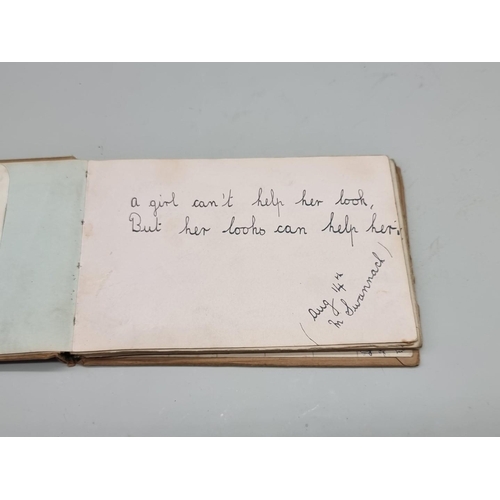 a girl can't help her look,
But her looks can help her.
(Aug 14th
M Swannack)